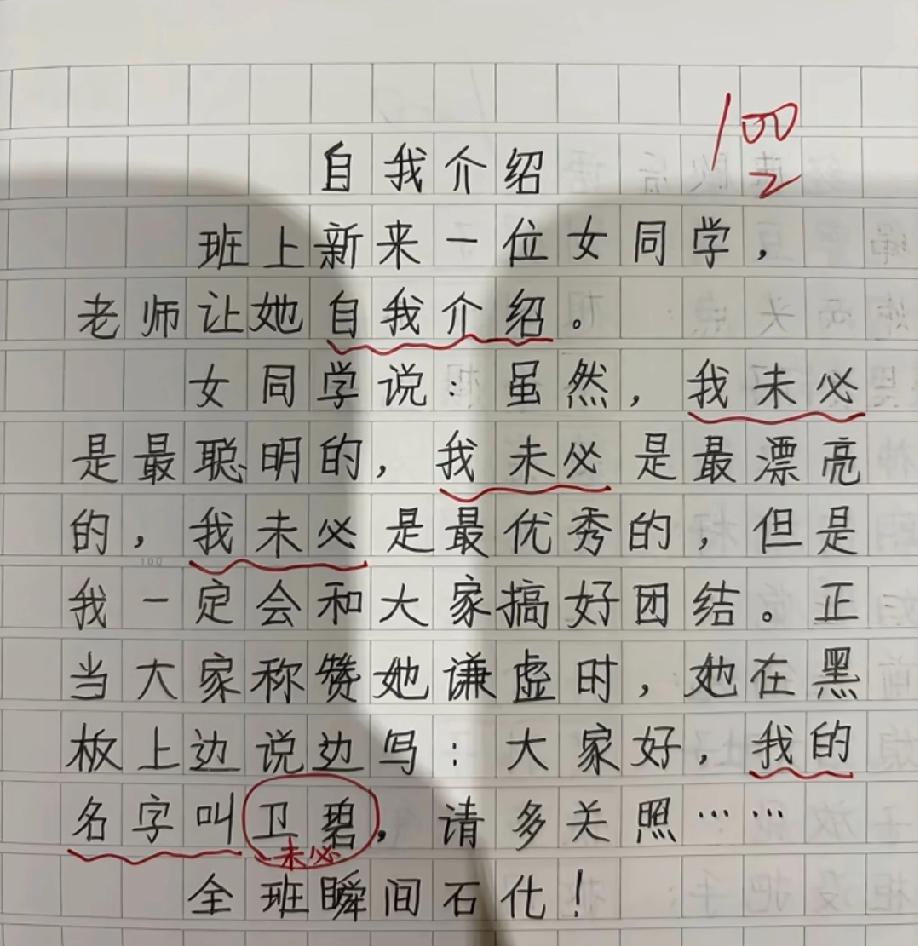 100
自我介绍
班上新来一位女同学，
老师让她自我介绍。
女同学说：虽然，我未必
是最聪明的，我未必是最漂亮
的，我未必是最优秀的，但是
我一定会和大家搞好团结。正
当大家称赞她谦虚时，她在黑
板上边说边写：大家好，我的
名字叫卫碧，请多关照……
未必
全班瞬间石化！